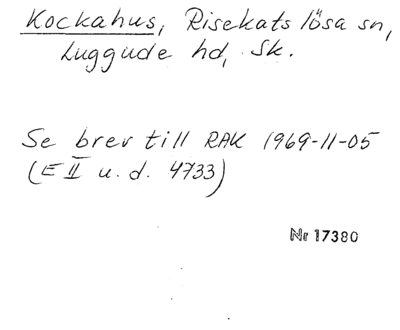 Kockahus, Risekatslösa sn,
Luggude hd, Sk.
Se brev till RAK 1969-11-05
(E II u. d. 4733)
Nr 17380